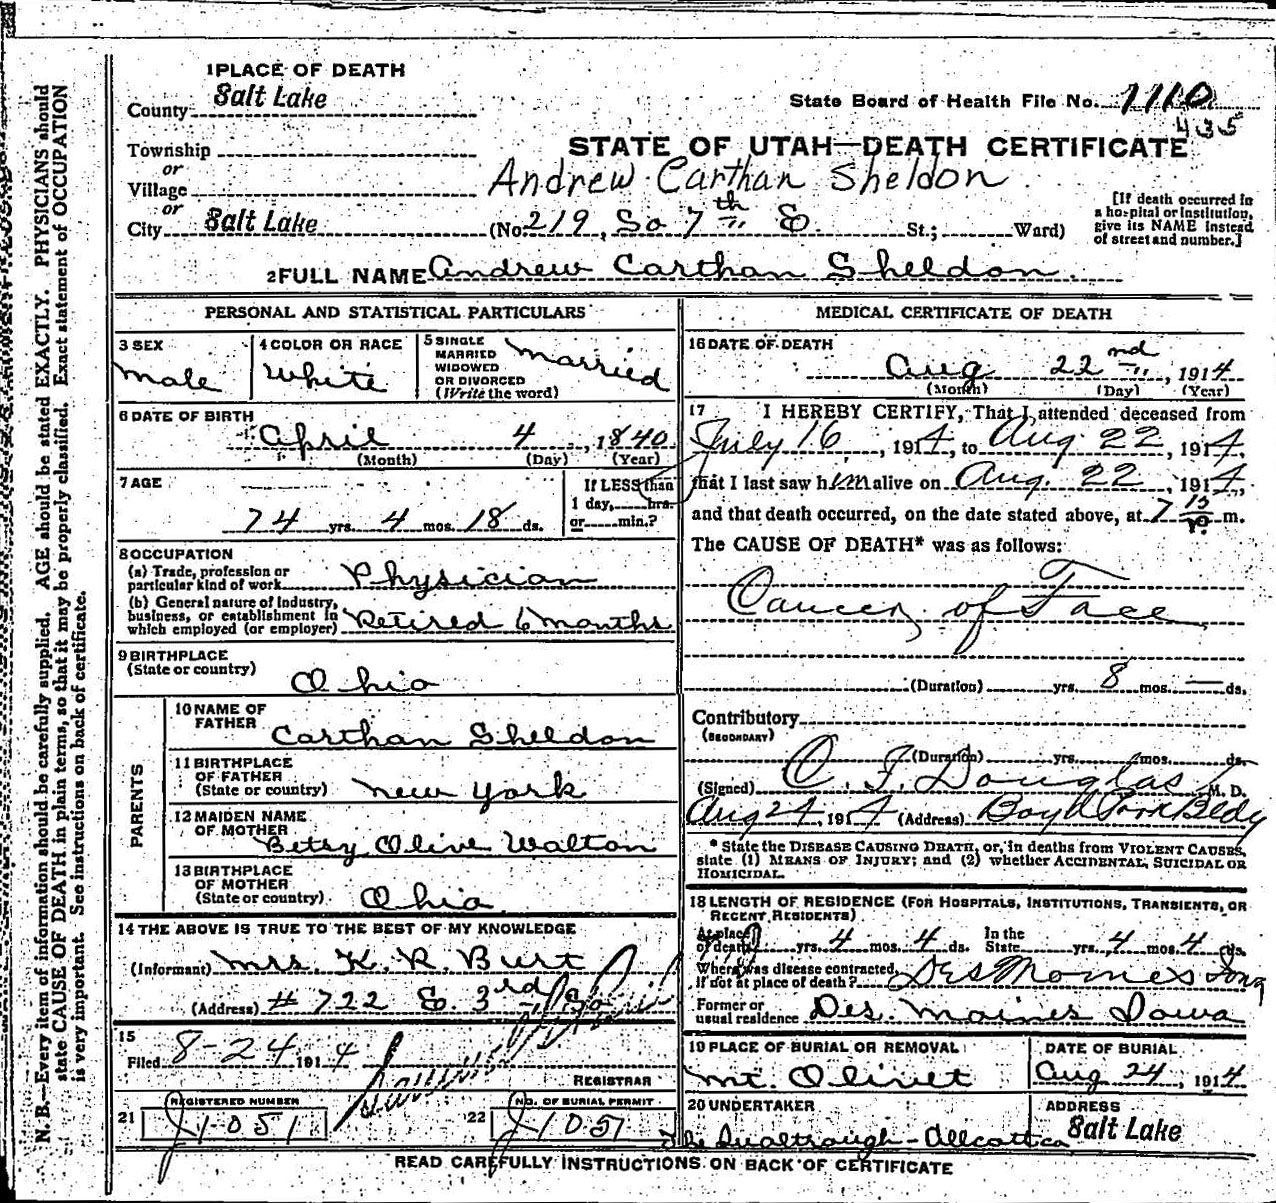 1 PLACE OF DEATH
County Salt Lake
State Board of Health File No. 1110
435
Township
or
Village
or
City Salt Lake
STATE OF UTAH—DEATH CERTIFICATE
Andrew Carthan Sheldon
(No. 219, So 7th E. St.; Ward)
[If death occurred in a hospital or institution, give its NAME instead of street and number.]
2 FULL NAME Andrew Carthan Sheldon.
PERSONAL AND STATISTICAL PARTICULARS
3 SEX
Male
4 COLOR OR RACE
White
5 SINGLE
MARRIED
WIDOWED
OR DIVORCED
(Write the word)
Married
6 DATE OF BIRTH
April 4, 1840
(Month) (Day) (Year)
7 AGE
74 yrs. 4 mos. 18 ds.
If LESS than
1 day, hrs.
or min.?
8 OCCUPATION
(a) Trade, profession or
particular kind of work Physician
(b) General nature of industry,
business, or establishment in
which employed (or employer) Retired 6 months
9 BIRTHPLACE
(State or country)
Ohio
PARENTS
10 NAME OF
FATHER
Carthan Sheldon
11 BIRTHPLACE
OF FATHER
(State or country) New York
12 MAIDEN NAME
OF MOTHER
Betsy Olive Walton
13 BIRTHPLACE
OF MOTHER
(State or country) Ohio
14 THE ABOVE IS TRUE TO THE BEST OF MY KNOWLEDGE
(Informant) Mrs. K. R. Burt
(Address) # 722 E. 3rd So
15
Filed 8-24 1914
REGISTRAR
21 REGISTERED NUMBER
J1051
22 NO. OF BURIAL PERMIT
J1051
MEDICAL CERTIFICATE OF DEATH
16 DATE OF DEATH
Aug 22nd, 1914
(Month) (Day) (Year)
17 I HEREBY CERTIFY, That I attended deceased from
July 16, 1914, to Aug 22, 1914,
that I last saw him alive on Aug. 22, 1914,
and that death occurred, on the date stated above, at 7 15 P. m.
The CAUSE OF DEATH* was as follows:
Cancer of Face
(Duration) yrs. 8 mos. — ds.
Contributory
(SECONDARY)
(Duration) yrs. mos. ds.
(Signed) C. F. Douglas M. D.
Aug 24, 1914 (Address) Boyd Park Bldg
* State the DISEASE CAUSING DEATH, or, in deaths from VIOLENT CAUSES,
state (1) MEANS OF INJURY; and (2) whether ACCIDENTAL, SUICIDAL OR
HOMICIDAL.
18 LENGTH OF RESIDENCE (FOR HOSPITALS, INSTITUTIONS, TRANSIENTS, OR
RECENT RESIDENTS)
At place
of death yrs. 4 mos. 4 ds. In the
State yrs. 4 mos. 4 ds.
Where was disease contracted,
If not at place of death? Des Moines Iowa
Former or
usual residence Des. Moines Iowa
19 PLACE OF BURIAL OR REMOVAL
Mt. Olivet
DATE OF BURIAL
Aug 24, 1914
20 UNDERTAKER
ADDRESS
Salt Lake
READ CAREFULLY INSTRUCTIONS ON BACK OF CERTIFICATE
N. B.—Every item of information should be carefully supplied. AGE should be stated EXACTLY. PHYSICIANS should
state CAUSE OF DEATH in plain terms, so that it may be properly classified. Exact statement of OCCUPATION
is very important. See instructions on back of certificate.